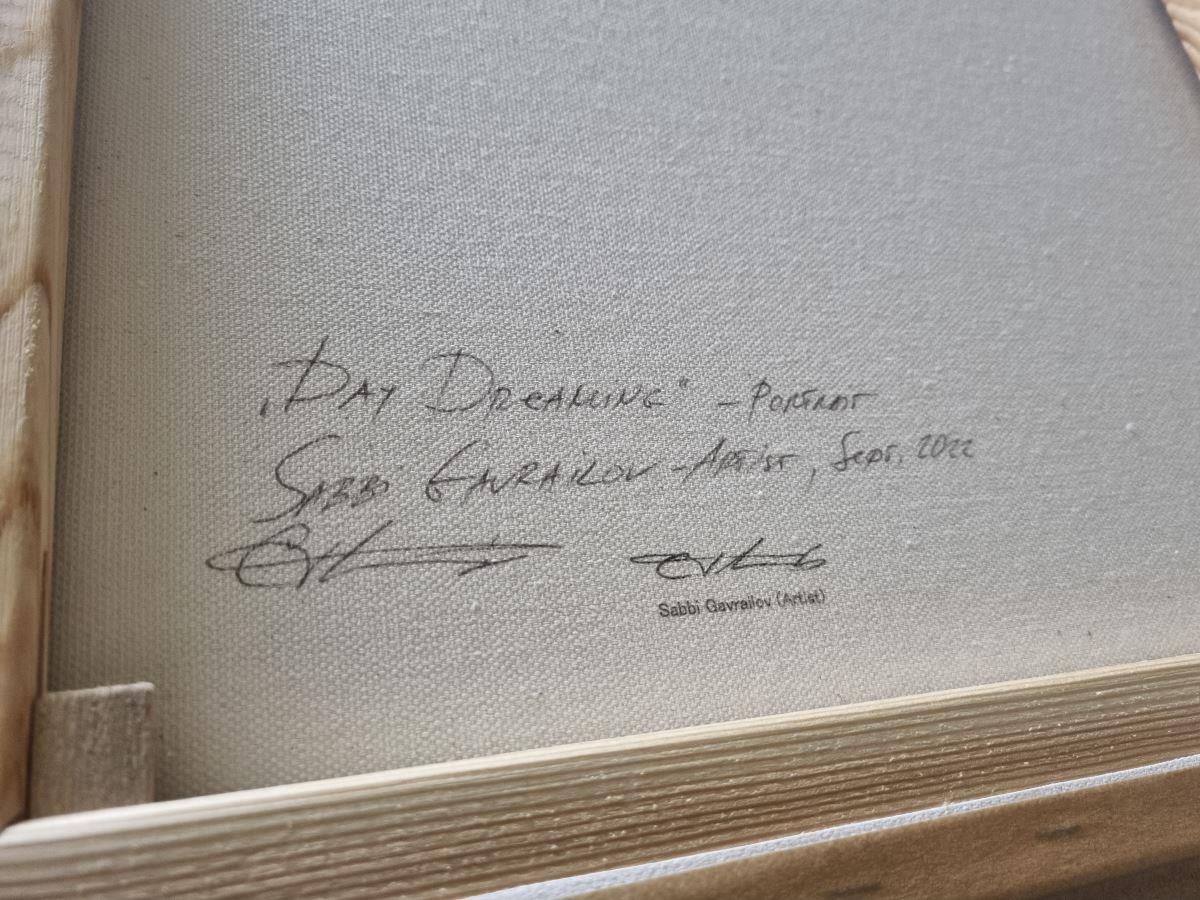 „Day Dreaming“ – Portrait
Sabbi Gavrailov – Artist, Sept. 2022
Sabbi Gavrailov (Artist)